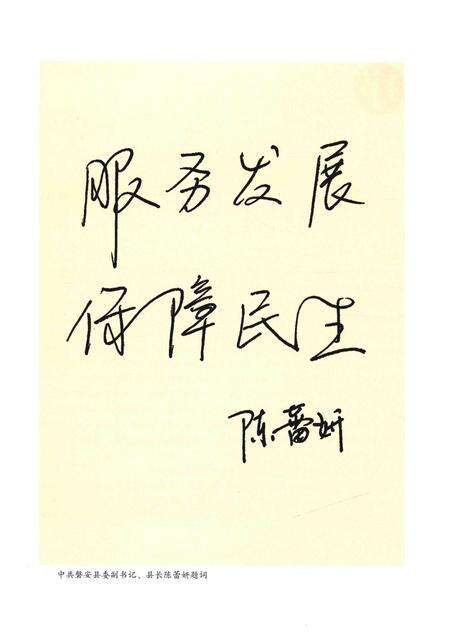 服务发展
保障民生
陈蕾妍
中共磐安县委副书记、县长陈蕾妍题词